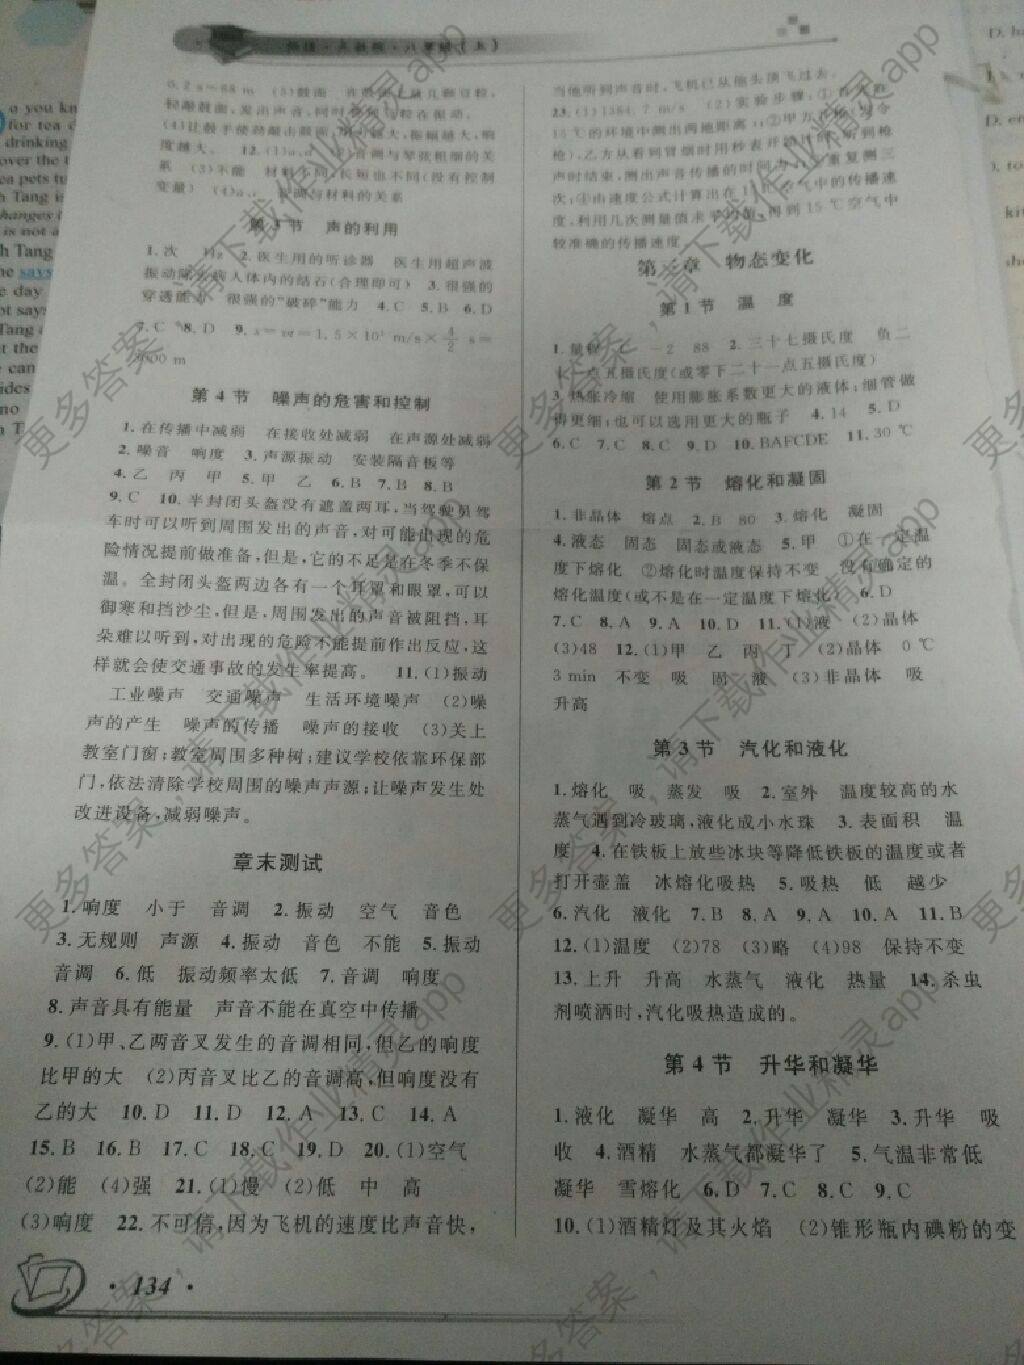 0.2 s=68 m (3)鼓面 在鼓面上放几颗豆粒,
轻敲鼓面,发出声音,同时看到豆粒在振动。
(4)让鼓手使劲敲击鼓面,声音越大,振幅越大,响
度越大。 12.(1)a、 音调与琴弦粗细的关
系 (3)不能 材料不同,长短也不同(没有控制
变量) (4)a、 音调与材料的关系
第3节 声的利用
1.次 Hz 2.医生用的听诊器 医生用超声波
振动除去病人体内的结石(合理即可) 3.很强的
穿透能力 很强的“破碎”能力 4.C 5.B 6.D
7.C 8.D 9.s=vt=1.5×10³ m/s×4/2 s=
3000 m
第4节 噪声的危害和控制
1.在传播中减弱 在接收处减弱 在声源处减弱
2.噪音 响度 3.声源振动 安装隔音板等
4.乙 丙 甲 5.甲 乙 6.B 7.B 8.B
9.C 10.半封闭头盔没有遮盖两耳,当驾驶员驾
车时可以听到周围发出的声音,对可能出现的危
险情况提前做准备,但是,它的不足是在冬季不保
温。全封闭头盔两边各有一个耳罩和眼罩,可以
御寒和挡沙尘,但是,周围发出的声音被阻挡,耳
朵难以听到,对出现的危险不能提前作出反应,这
样就会使交通事故的发生率提高。 11.(1)振动
工业噪声 交通噪声 生活环境噪声 (2)噪
声的产生 噪声的传播 噪声的接收 (3)关上
教室门窗;教室周围多种树;建议学校依靠环保部
门,依法清除学校周围的噪声声源;让噪声发生处
改进设备,减弱噪声。
章末测试
1.响度 小于 音调 2.振动 空气 音色
3.无规则 声源 4.振动 音色 不能 5.振动
音调 6.低 振动频率太低 7.音调 响度
8.声音具有能量 声音不能在真空中传播
9.(1)甲、乙两音叉发生的音调相同,但乙的响度
比甲的大 (2)丙音叉比乙的音调高,但响度没有
乙的大 10.D 11.D 12.A 13.C 14.A
15.B 16.B 17.C 18.C 19.D 20.(1)空气
(2)能 (4)强 21.(1)慢 (2)低 中 高
(3)响度 22.不可信,因为飞机的速度比声音快,
当他听到声音时,飞机已从他头顶飞过去。
23.(1)1384.7 m/s (2)实验步骤:①在
15℃的环境中测出两地距离s;②甲方在 发令
枪,乙方从看到冒烟时用秒表开始计时,听到枪
声时结束,测出声音传播的时间 重复测三
次;④由速度公式计算出在15℃空气中的传播速
度,利用几次测量值求平均值,得到15℃空气中
较准确的传播速度
第三章 物态变化
第1节 温 度
1.量程 C -2 88 2.三十七摄氏度 负二
十一点五摄氏度(或零下二十一点五摄氏度)
3.热胀冷缩 使用膨胀系数更大的液体;细管做
得更细;也可以选用更大的瓶子 4.14 5.D
6.C 7.C 8.C 9.D 10.BAFCDE 11.30℃
第2节 熔化和凝固
1.非晶体 熔点 2.B 80 3.熔化 凝固
4.液态 固态 固态或液态 5.甲 ①在一定温
度下熔化 ②熔化时温度保持不变 没有确定的
熔化温度(或不是在一定温度下熔化) 6.D
7.C 8.A 9.A 10.D 11.(1)液 (2)晶体
(3)48 12.(1)甲 乙 丙 丁 (2)晶体 0℃
3 min 不变 吸 固 液 (3)非晶体 吸
升高
第3节 汽化和液化
1.熔化 吸 蒸发 吸 2.室外 温度较高的水
蒸气遇到冷玻璃,液化成小水珠 3.表面积 温
度 4.在铁板上放些冰块等降低铁板的温度或者
打开壶盖 冰熔化吸热 5.吸热 低 越少
6.汽化 液化 7.B 8.A 9.A 10.A 11.B
12.(1)温度 (2)78 (3)略 (4)98 保持不变
13.上升 升高 水蒸气 液化 热量 14.杀虫
剂喷洒时,汽化吸热造成的。
第4节 升华和凝华
1.液化 凝华 高 2.升华 凝华 3.升华 吸
收 4.酒精 水蒸气都凝华了 5.气温非常低
凝华 雪熔化 6.D 7.C 8.C 9.C
10.(1)酒精灯及其火焰 (2)锥形瓶内碘粉的变
· 134 ·
更多答案,请下载作业精灵app